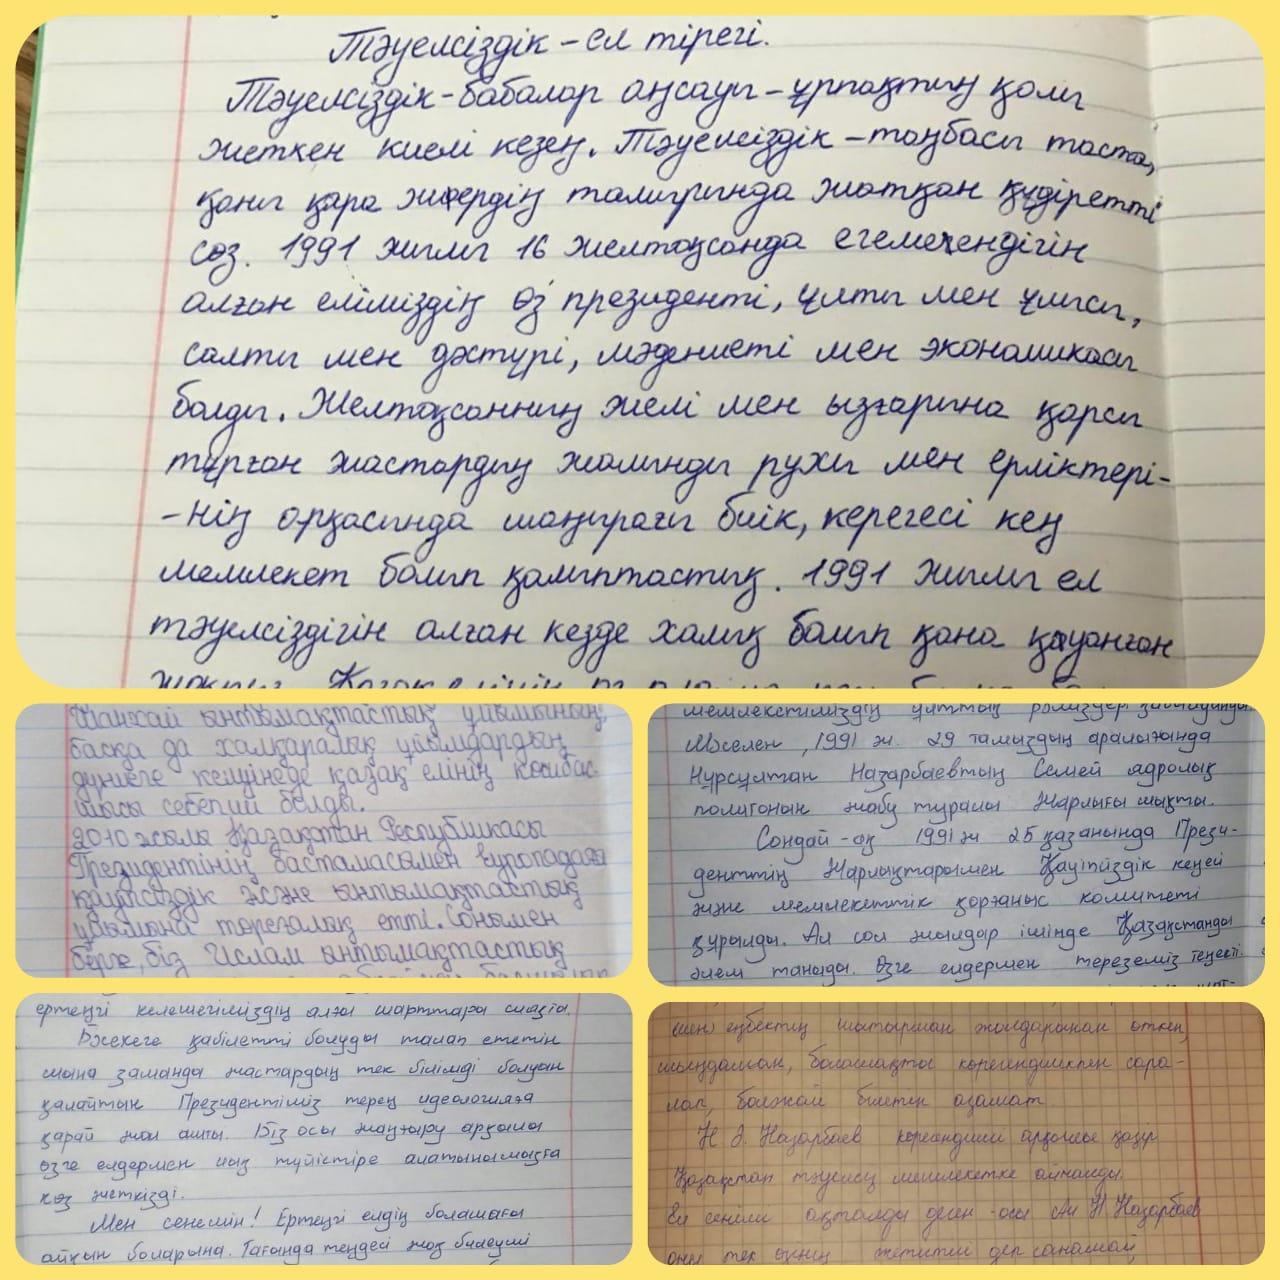 Тәуелсіздік – ел тірегі.
Тәуелсіздік-бабалар аңсауы – ұрпақтың қолы
жеткен киелі кезең. Тәуелсіздік – таңбасы таста,
қаны қара жердің тамырында жатқан құдіретті
сөз. 1991 жылы 16 желтоқсанда егемендігін
алған еліміздің өз президенті, ұлты мен ұлысы,
салты мен дәстүрі, мәдениеті мен экономикасы
болды. Желтоқсанның желі мен ызғарына қарсы
тұрған жастардың жалынды рухы мен ерліктері-
-нің арқасында шаңырағы биік, керегесі кең
мемлекет болып қалыптастық. 1991 жылы ел
тәуелсіздігін алған кезде халық болып қана қуанған
Шанхай ынтымақтастық ұйымының,
басқа да халқаралық ұйымдардың
дүниеге келуінеде қазақ елінің көшбас-
шысы себепші болды.
2010 жылы Қазақстан Республикасы
Президентінің бастамасымен еуропадағы
қауіпсіздік және ынтымақтастық
ұйымына төрағалық етті. Сонымен
бірге, біз Ислам ынтымақтастық
мемлекетіміздің ұлттық рәміздері
Мәселен, 1991 ж. 29 тамыздың аралығында
Нұрсұлтан Назарбаевтың Семей ядролық
полигонын жабу туралы Жарлығы шықты.
Сондай-ақ 1991 ж 25 қазанында Прези-
денттің Жарлықтарымен Қауіпсіздік кеңесі
және мемлекеттік қорғаныс комитеті
құрылды. Ал сол жылдар ішінде Қазақстанды
әлем таныды. Өзге елдермен тереземіз теңесті.
ертеңгі келешегіміздің алғы шарттары сияқты.
Бәсекеге қабілетті болуды талап ететін
мына заманда жастардың тек білімді болуын
қалайтын Президентіміз терең идеологияға
қарай жол ашты. Біз осы жаңғыру арқылы
өзге елдермен иық түйістіре алатынымызға
көз жеткізді.
Мен сенемін! Ертеңгі елдің болашағы
айқын боларына. Тағында теңдесі жоқ билеуші
еңбектің шытырман жолдарынан өткен,
шыңдалған, болашақты көрегендікпен сара-
лап, болжай білетін азамат.
Н.Ә. Назарбаев көрегендігі арқылы қазір
Қазақстан тәуелсіз мемлекетке айналды.
Ел сенімі ақталды деген осы. Ал Н. Назарбаев
оны тек өзінің жетістігі деп санамай,